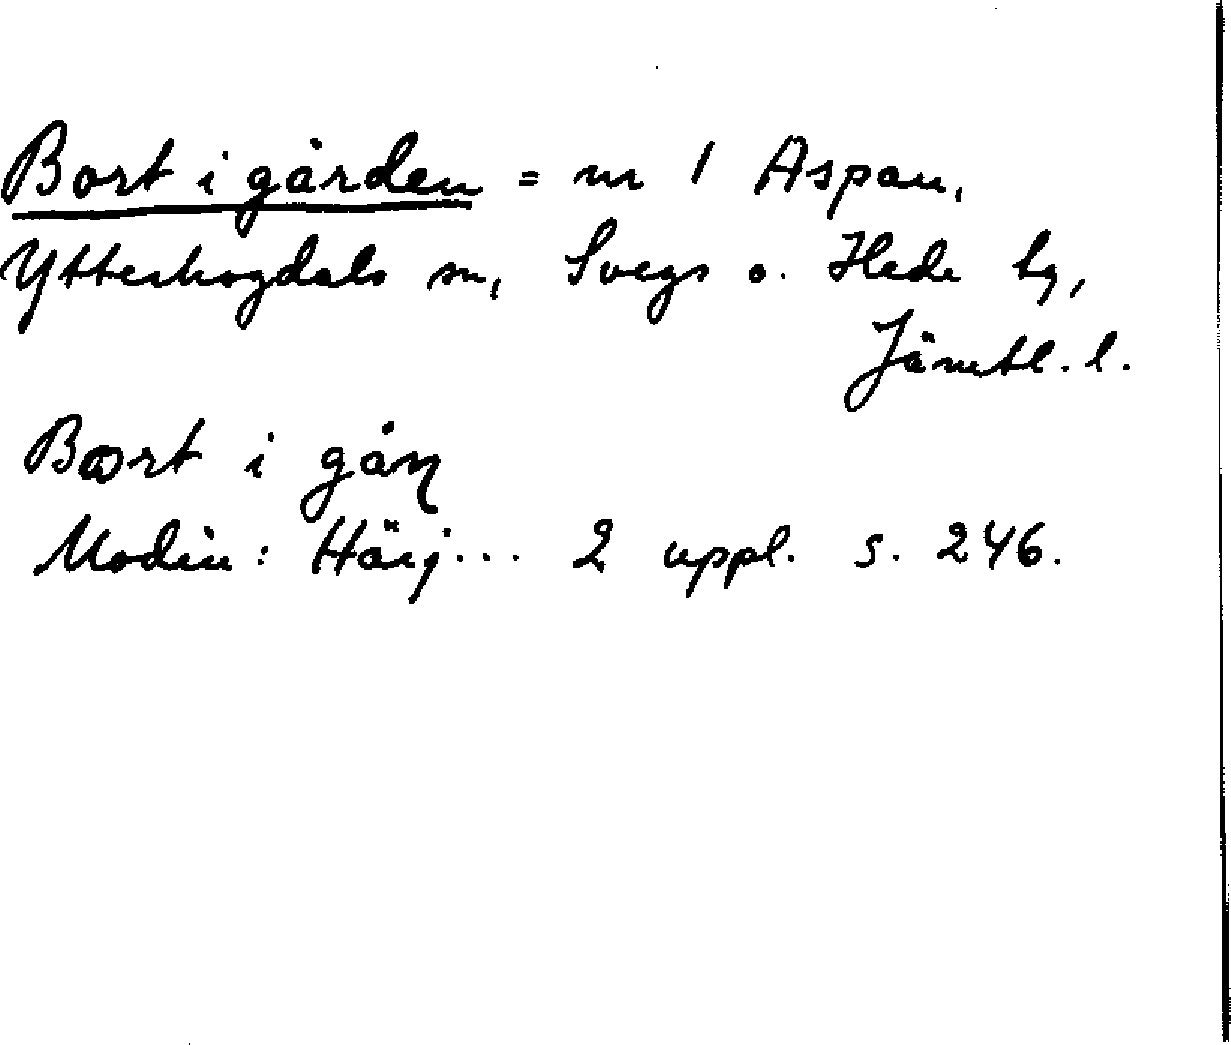 Bort i gården = nr 1 Aspan,
Ytterhogdals sn, Svegs o. Hede tg,
Jämtl. l.
Bort i gåη
Modin: Härj... 2 uppl. s. 246.